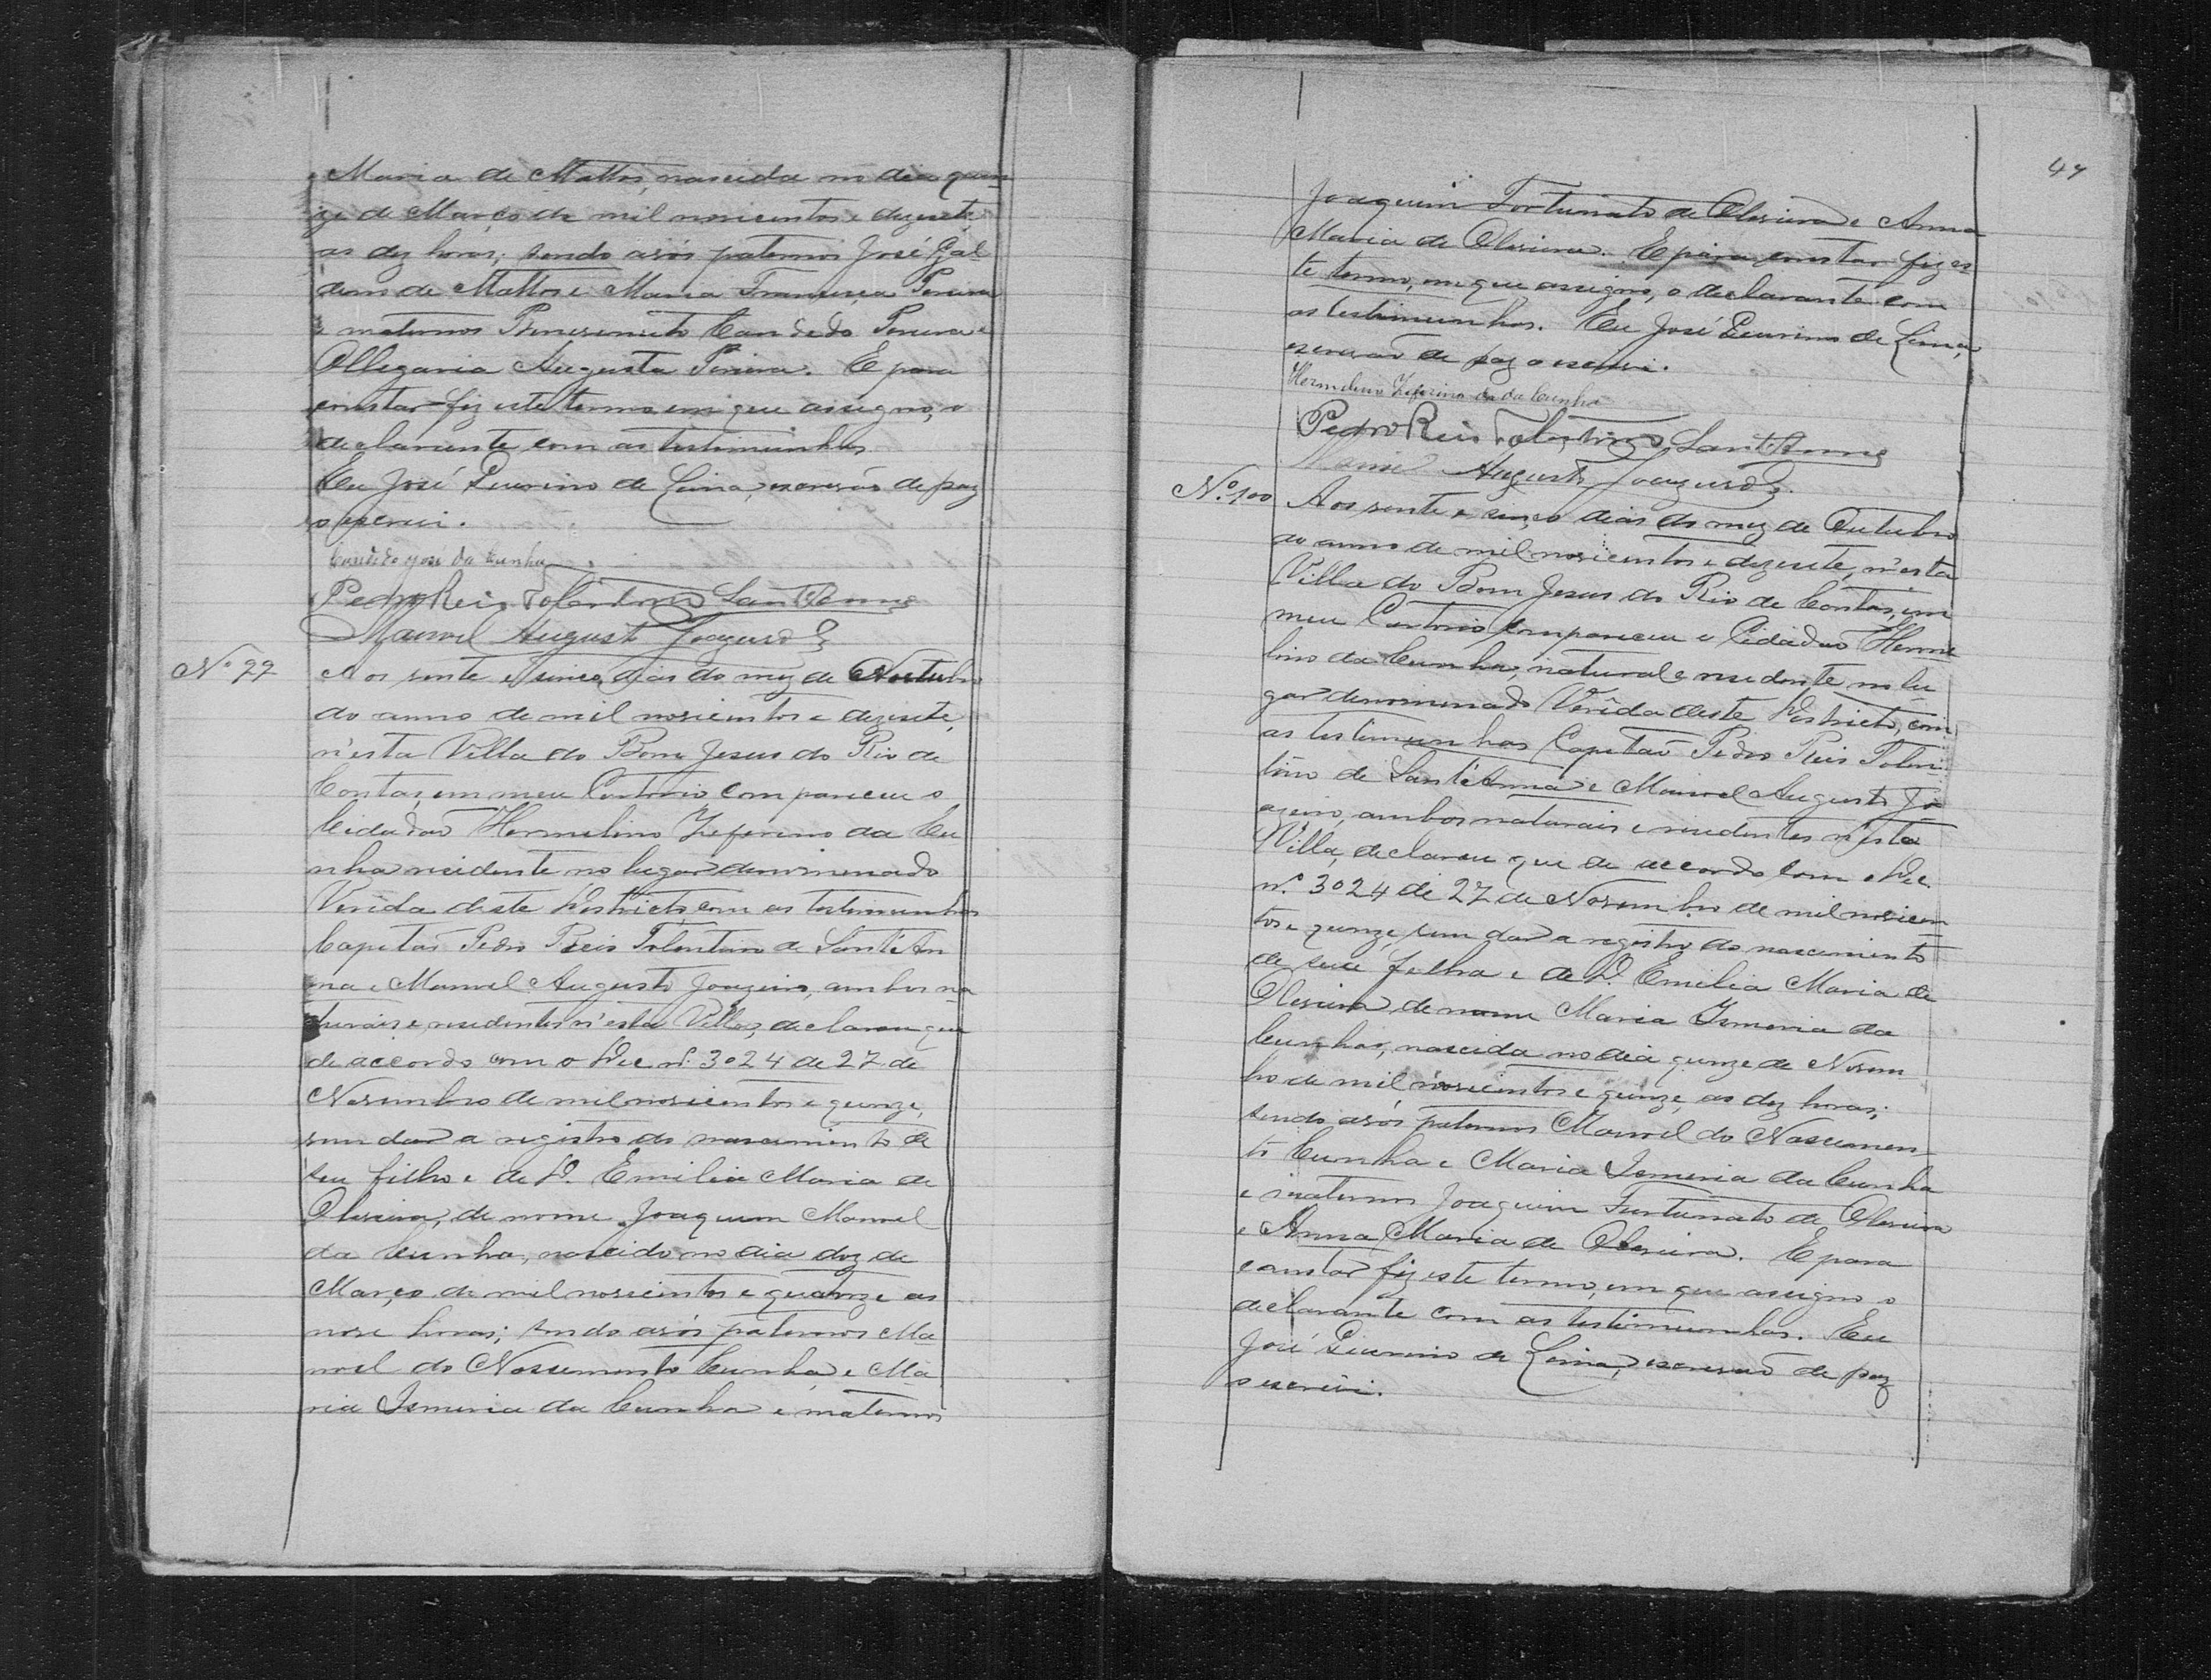 Maria de Mattos, nascida no dia quin
ze de Março de mil novecentos e dezesete
as dez horas; sendo avós paternos José Gal
dino de Mattos e Maria Francisca Pereira
e maternos Bemvenuto Candido Pereira e
Ollegaria Augusta Pereira. E para
constar fiz este termo em que assigno, o
declarante com as testimunhas.
Eu José Liurino de Lima, escrivão de paz
o escrevi.
Candido José da Cunha
Pedro Reis Tolentino Sant'Anna
Manoel Augusto Joazeiro
Nº 99
Aos vente e cinco dias do mez de Outubro
do anno de mil novicentos e dezesete,
n'esta Villa do Bom Jesus do Rio de
Contas, em meu Cartorio compareceu o
Cidadão Hermelino Zeferino da Cu
nha residente no lugar denominado
Verêda deste Districto, com as testimunhas
Capitão Pedro Reis Tolentino de Sant'An
na e Manoel Augusto Joazeiro, ambos na
turais e residentes n'esta Villa, declarou que
de accordo com o Dec nº 3024 de 27 de
Novembro de mil novicentos e quinze,
vem dar a registro do nascimento de
seu filho e de D. Emilia Maria de
Oliveira, de nome Joaquim Manoel
da Cunha, nascido no dia doz de
Março de mil novicentos e quatorze as
nove horas; sendo avós paternos Ma
noel do Nascimento Cunha e Ma
ria Ismeria da Cunha e maternos
47
Joaquim Fortunato de Oliveira e Anna
Maria de Oliveira. E para constar fiz es
te termo, em que assigno, o declarante com
as testimunhas. Eu José Liurino de Lima,
escrivão de paz o escrevi.
Hermelino Zeferino da Cunha
Pedro Reis Tolentino Sant'Anna
Manoel Augusto Joazeiro
Nº 100
Aos vente e cinco dias do mez de Outubro
do anno de mil novicentos e dezesete, n'esta
Villa do Bom Jesus do Rio de Contas, em
meu Cartorio compareceu o Cidadão Herme
lino da Cunha, natural e residente no lu
gar denominado Verêda deste Districto, com
as testimunhas Capitão Pedro Reis Tolen
tino de Sant'Anna e Manoel Augusto Jo
azeiro, ambos naturais e residentes n'esta
Villa, declarou que de accordo com o Dec.
nº 3024 de 27 de Novembro de mil novicen
tos e quinze, vem dar a registro do nascimento
de sua filha e de D. Emilia Maria de
Oliveira de nome Maria Ismeria da
Cunha, nascida no dia quinze de Novem
bro de mil novicentos e quinze, as dez horas;
sendo avós paternos Manoel do Nascimen
to Cunha e Maria Ismeria da Cunha
e maternos Joaquim Furtunato de Oliveira
e Anna Maria de Oliveira. E para
constar fiz este termo, em que assigno o
declarante com as testimunhas. Eu
José Liurino de Lima, escrivão de paz
o escrevi.